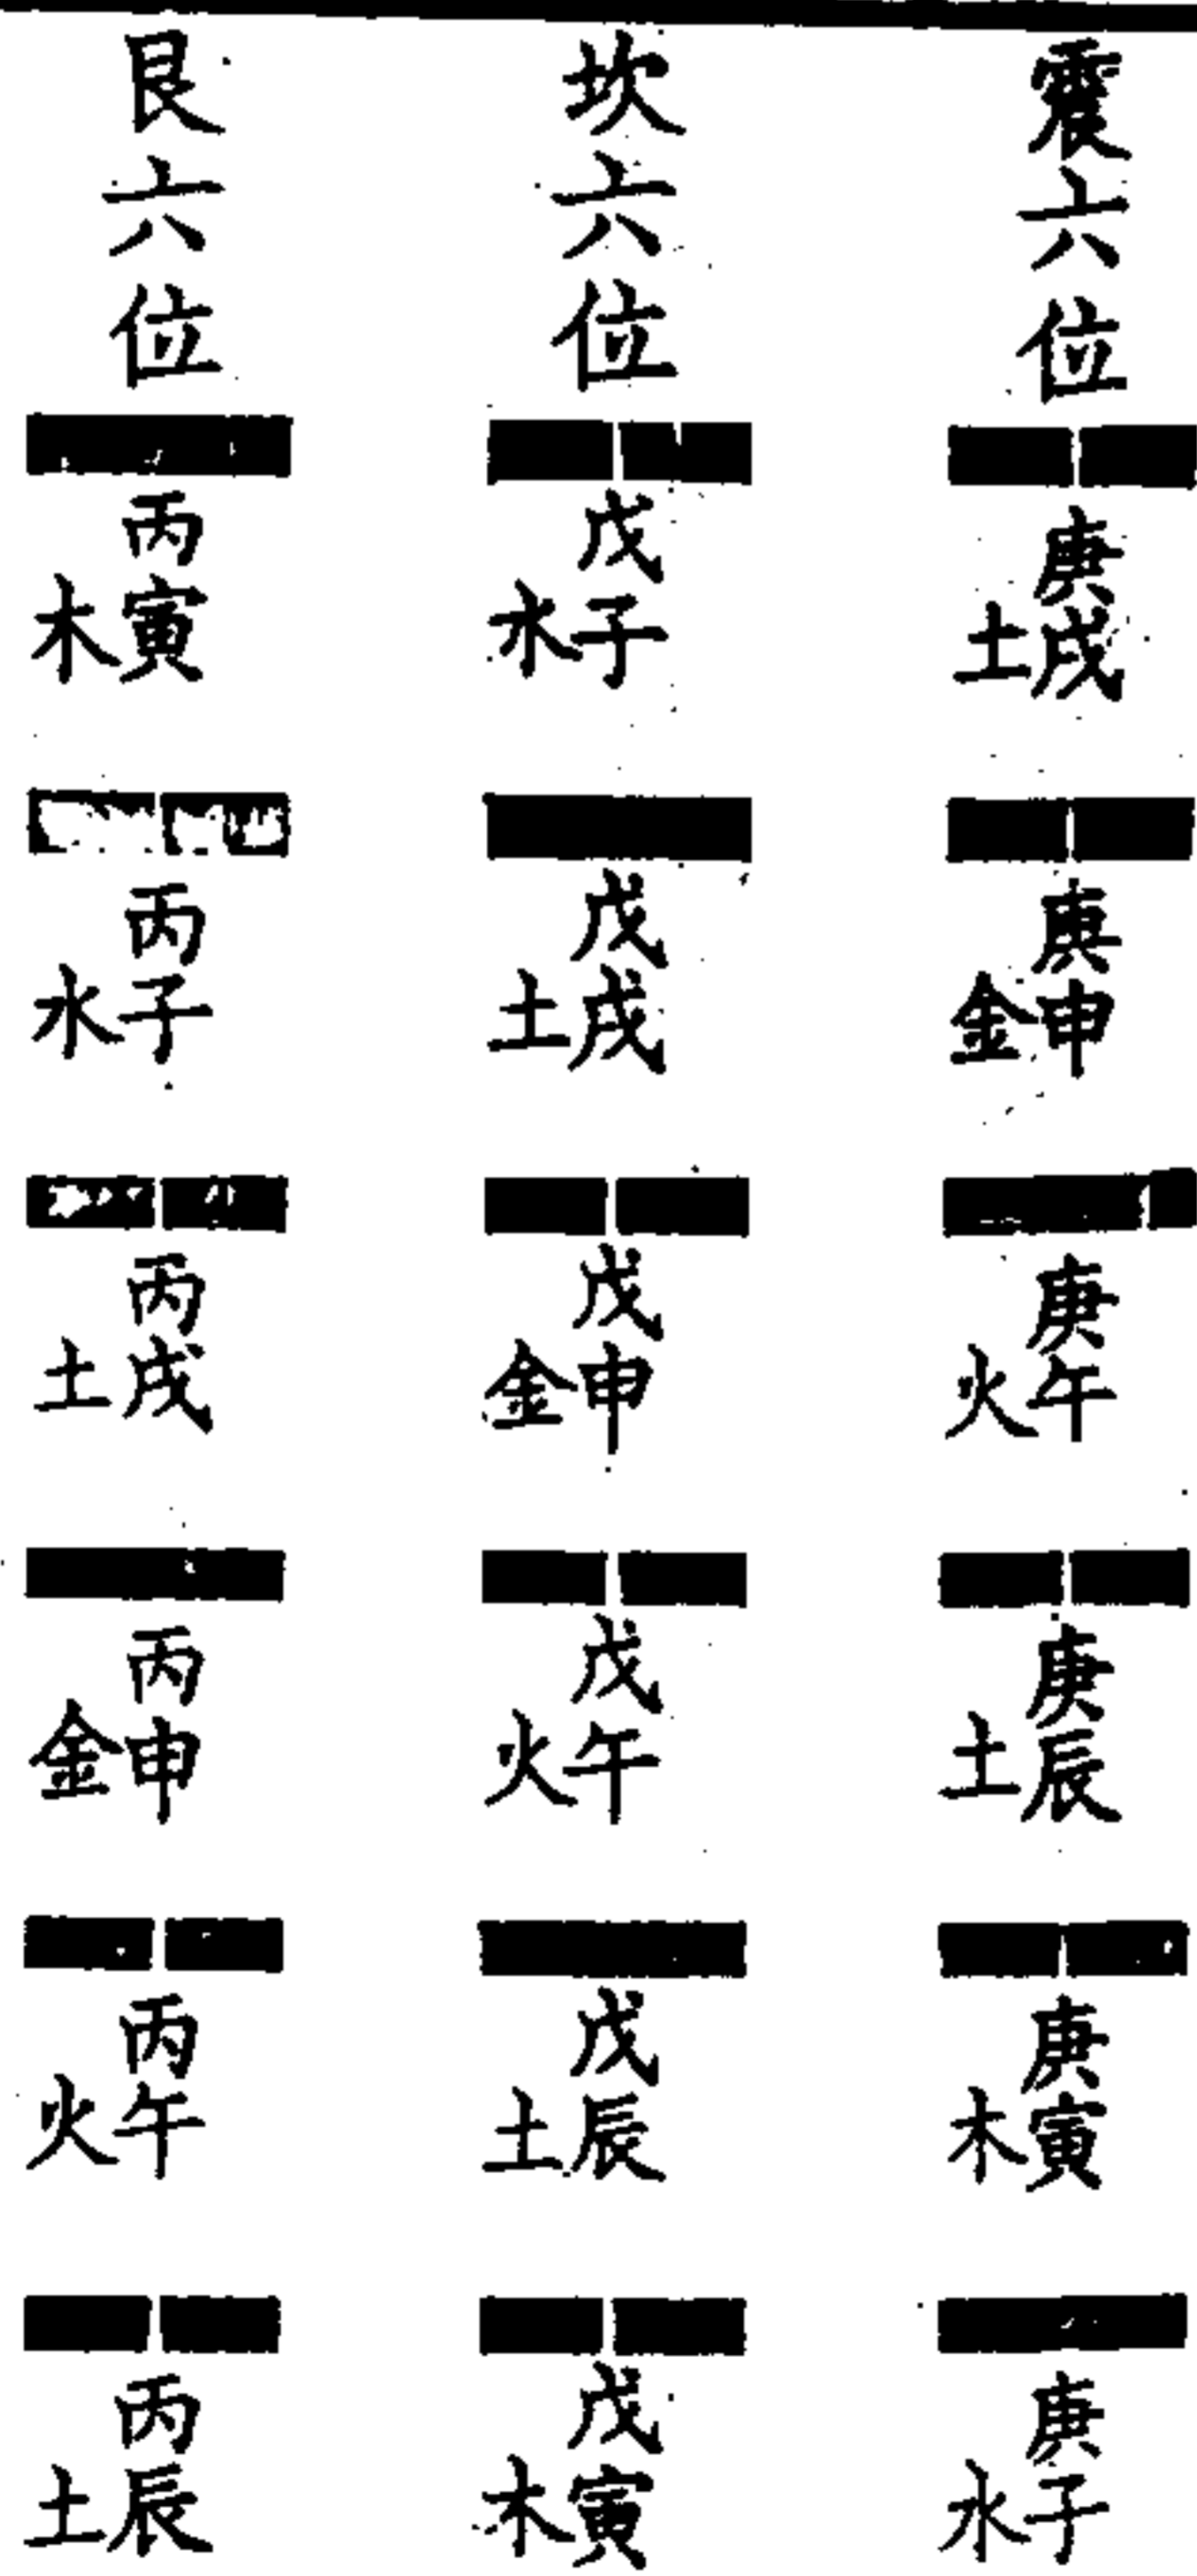 震六位
庚戌土
庚申金
庚午火
庚辰土
庚寅木
庚子水
坎六位
戊子水
戊戌土
戊申金
戊午火
戊辰土
戊寅木
艮六位
丙寅木
丙子水
丙戌土
丙申金
丙午火
丙辰土